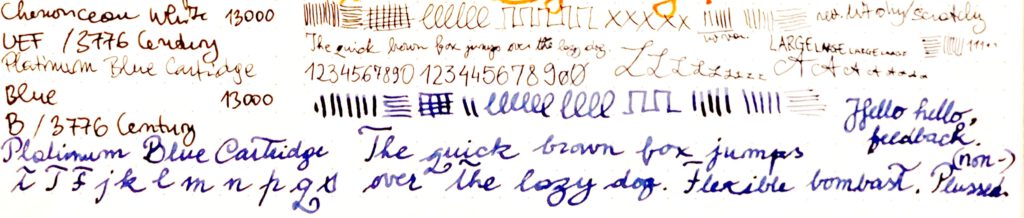 Chenonceau White 13000
UEF / 3776 Century
The quick brown fox jumps over the lazy dog.
LARGE LARGE LARGE LARGE
Platinum Blue Cartridge
1234567890 12344567890
L L L L L L L L L A A A A A A A A
Blue 13000
B / 3776 Century
Hello hello,
feedback.
Platinum Blue Cartridge The quick brown fox jumps
(non-)
T T F j k l m n p q over the lazy dog. Flexible bombast. Plussed.